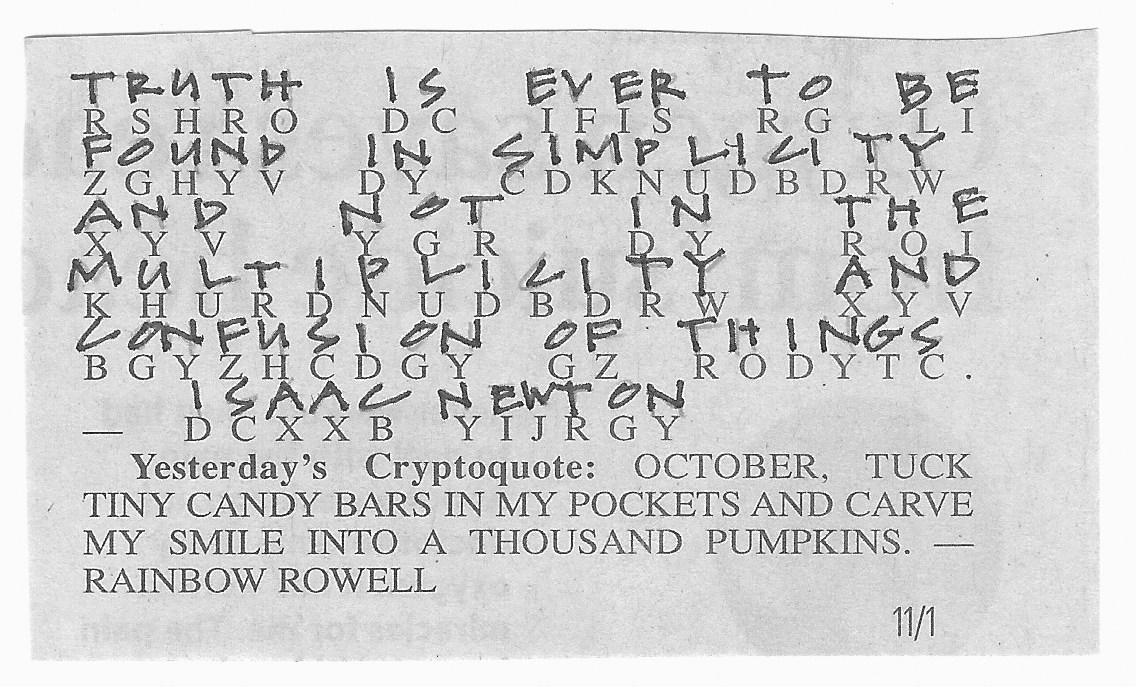 TRUTH IS EVER TO BE
RSHRO DC IFIS RG LI
FOUND IN SIMPLICITY
ZGHYV DY CDKNUDBDRW
AND NOT IN THE
XYV YGR DY ROI
MULTIPLICITY AND
KHURDNUDBDRW XYV
CONFUSION OF THINGS
BGYZHCDGY GZ RODYTC.
ISAAC NEWTON
— DCXXB YIJRGY
Yesterday's Cryptoquote: OCTOBER, TUCK
TINY CANDY BARS IN MY POCKETS AND CARVE
MY SMILE INTO A THOUSAND PUMPKINS. —
RAINBOW ROWELL
11/1